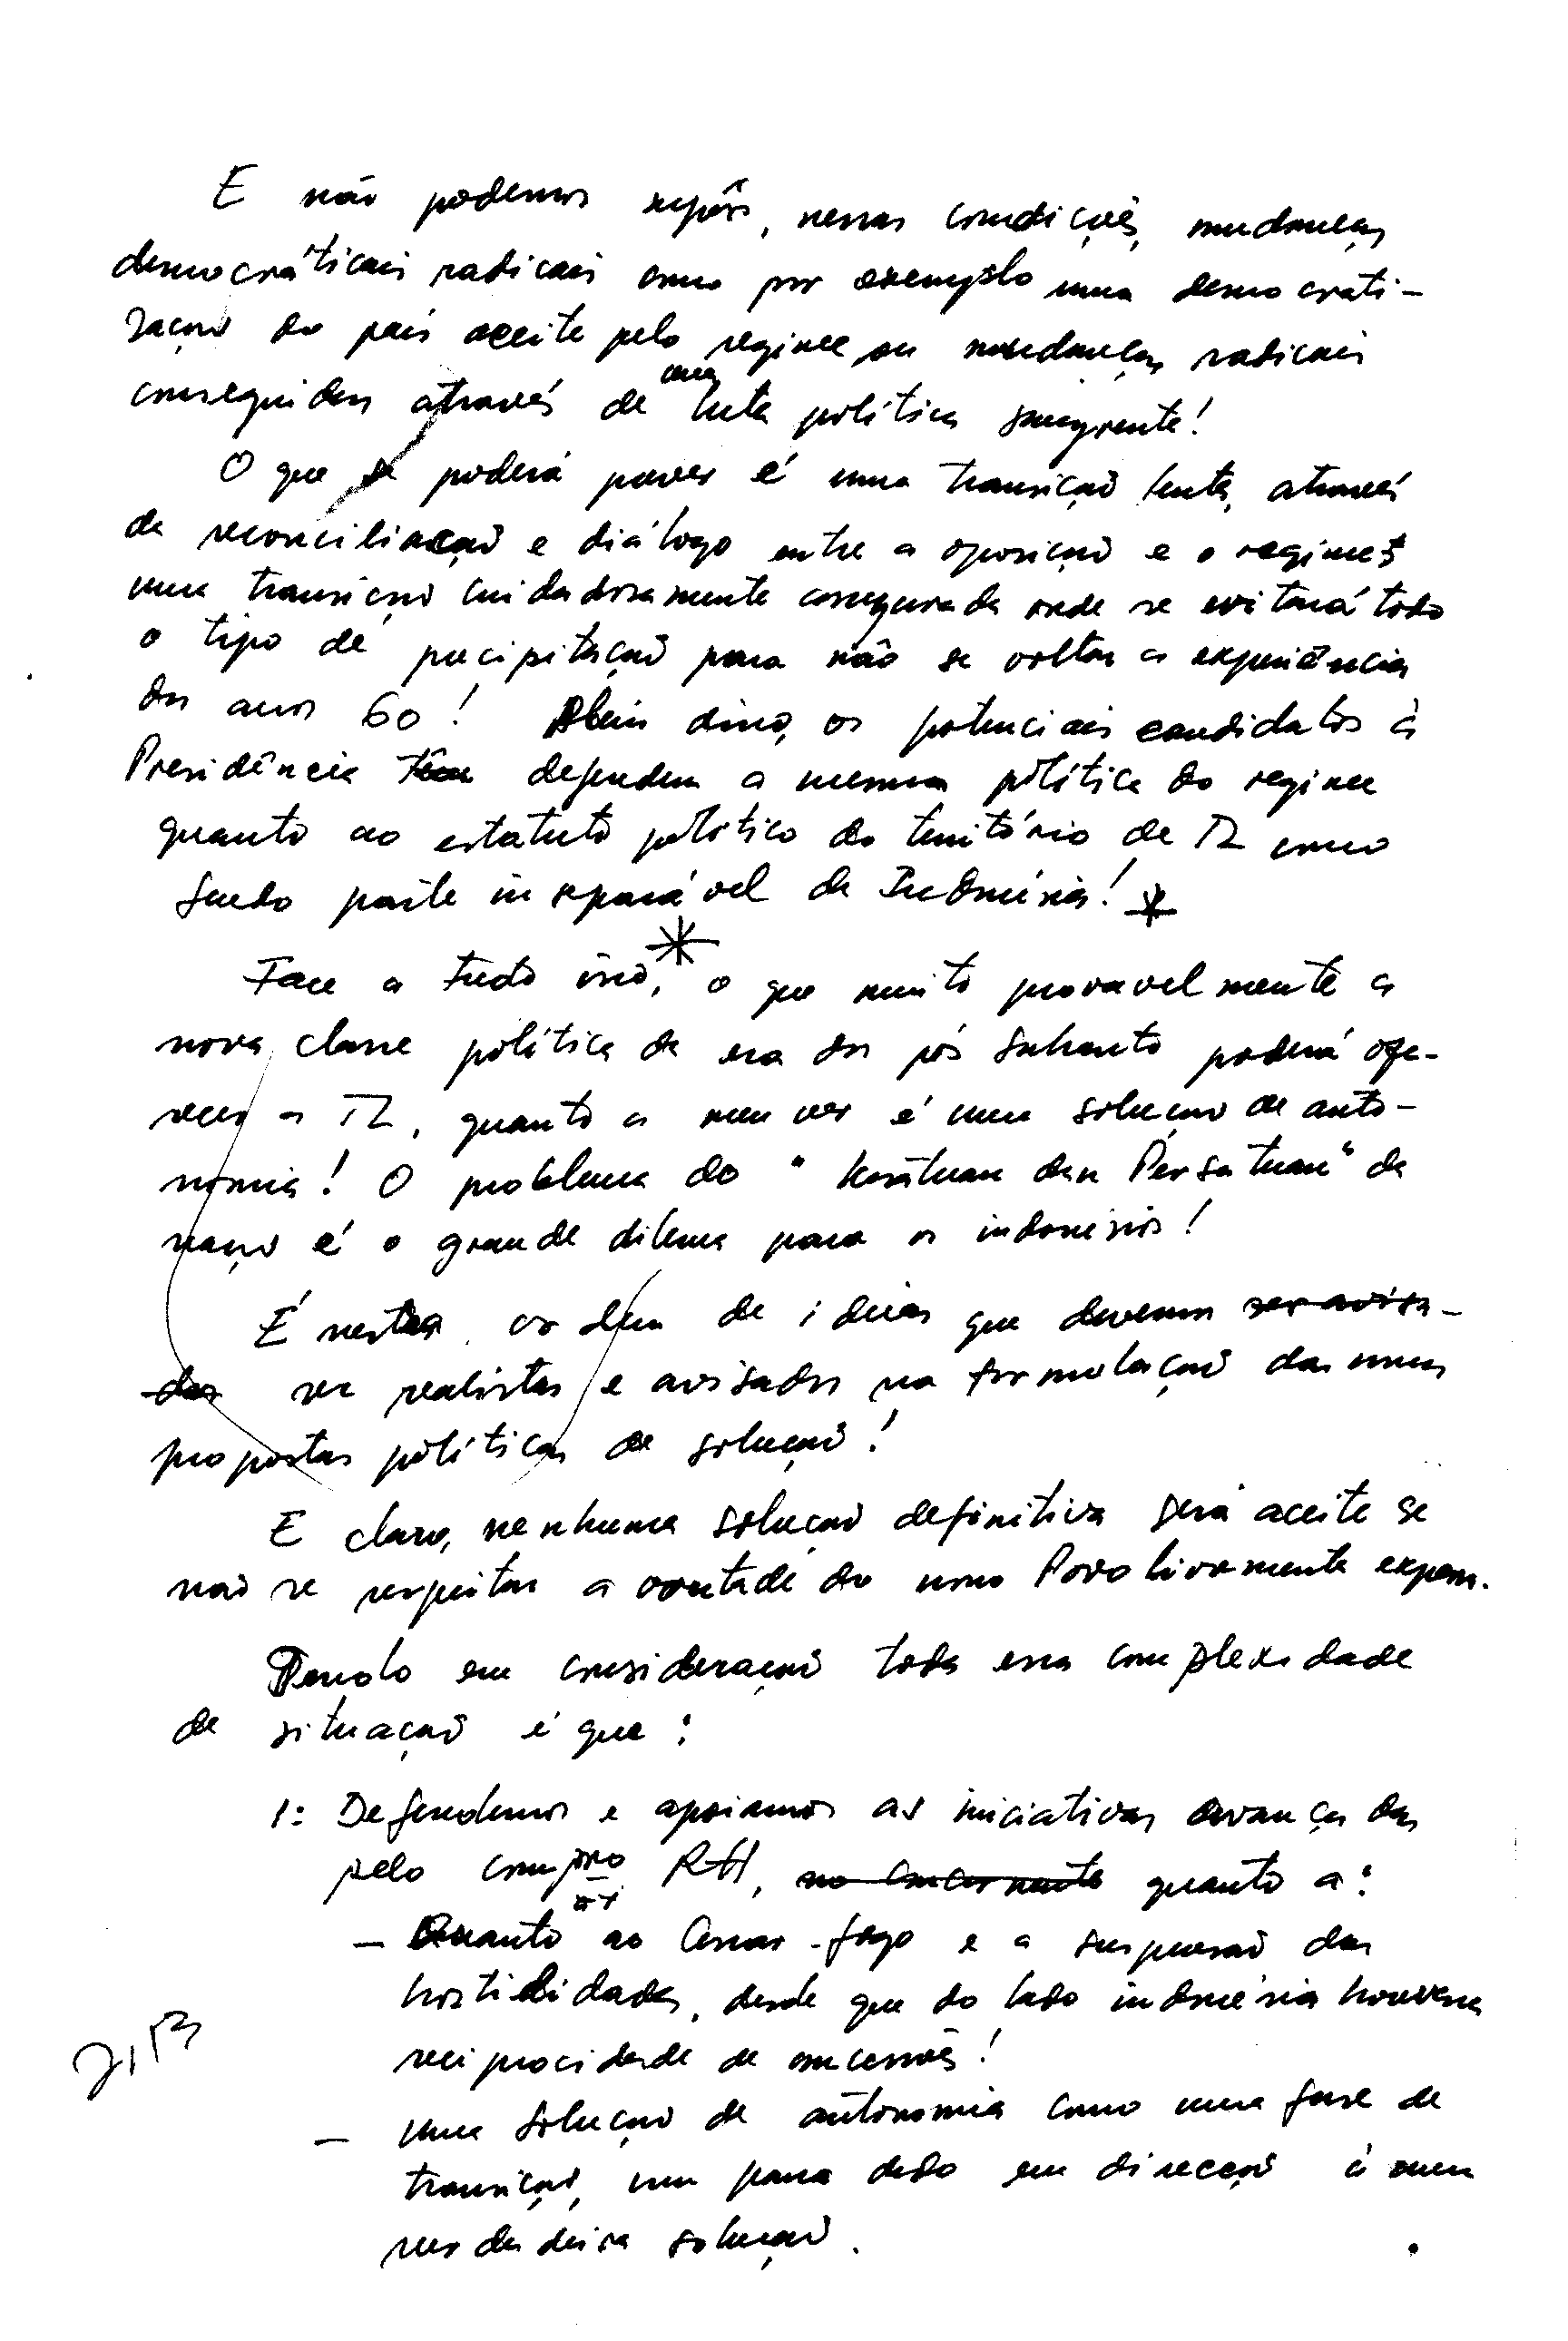 E não podemos supôr, nessas condições, mudanças
democráticas radicais como por exemplo uma democrati-
zação do país aceite pelo regime ou mudanças radicais
conseguidas através de uma luta política sangrenta!
O que se poderá prever é uma transição lenta, através
da reconciliação e diálogo entre a oposição e o regime
uma transição cuidadosamente assegurada onde se evitará todo
o tipo de precipitação para não se voltar a experiência
dos anos 60! Além disso, os potenciais candidatos à
Presidência defendem a mesma política do regime
quanto ao estatuto político do território de TL como
sendo parte inseparável da Indonésia! *
Face a tudo isso,* o que muito provavelmente a
nova classe política da era dos pós Suharto poderá ofe-
recer a TL, quanto a meu ver é uma solução de auto-
nomia! O problema do "Kesatuan dan Persatuan" da
nação é o grande dilema para os indonésios!
É nesta ordem de ideias que devemos ser avisa-
dos ser realistas e avisados na formulação das nossas
propostas políticas de solução!
E claro, nenhuma solução definitiva será aceite se
não se respeitar a vontade do nosso Povo livremente expressa.
Tendo em consideração toda essa complexidade
de situação é que:
1: Defendemos e apoiamos as iniciativas avançadas
pelo compro RH, no concernente quanto a:
- Quanto ao Cessar-fogo e a suspensão das
hostilidades, desde que do lado indonésia houvesse
reciprocidade de concessões!
- Uma solução de autonomia como uma fase de
transição, um passo dado em direcção à uma
verdadeira solução.